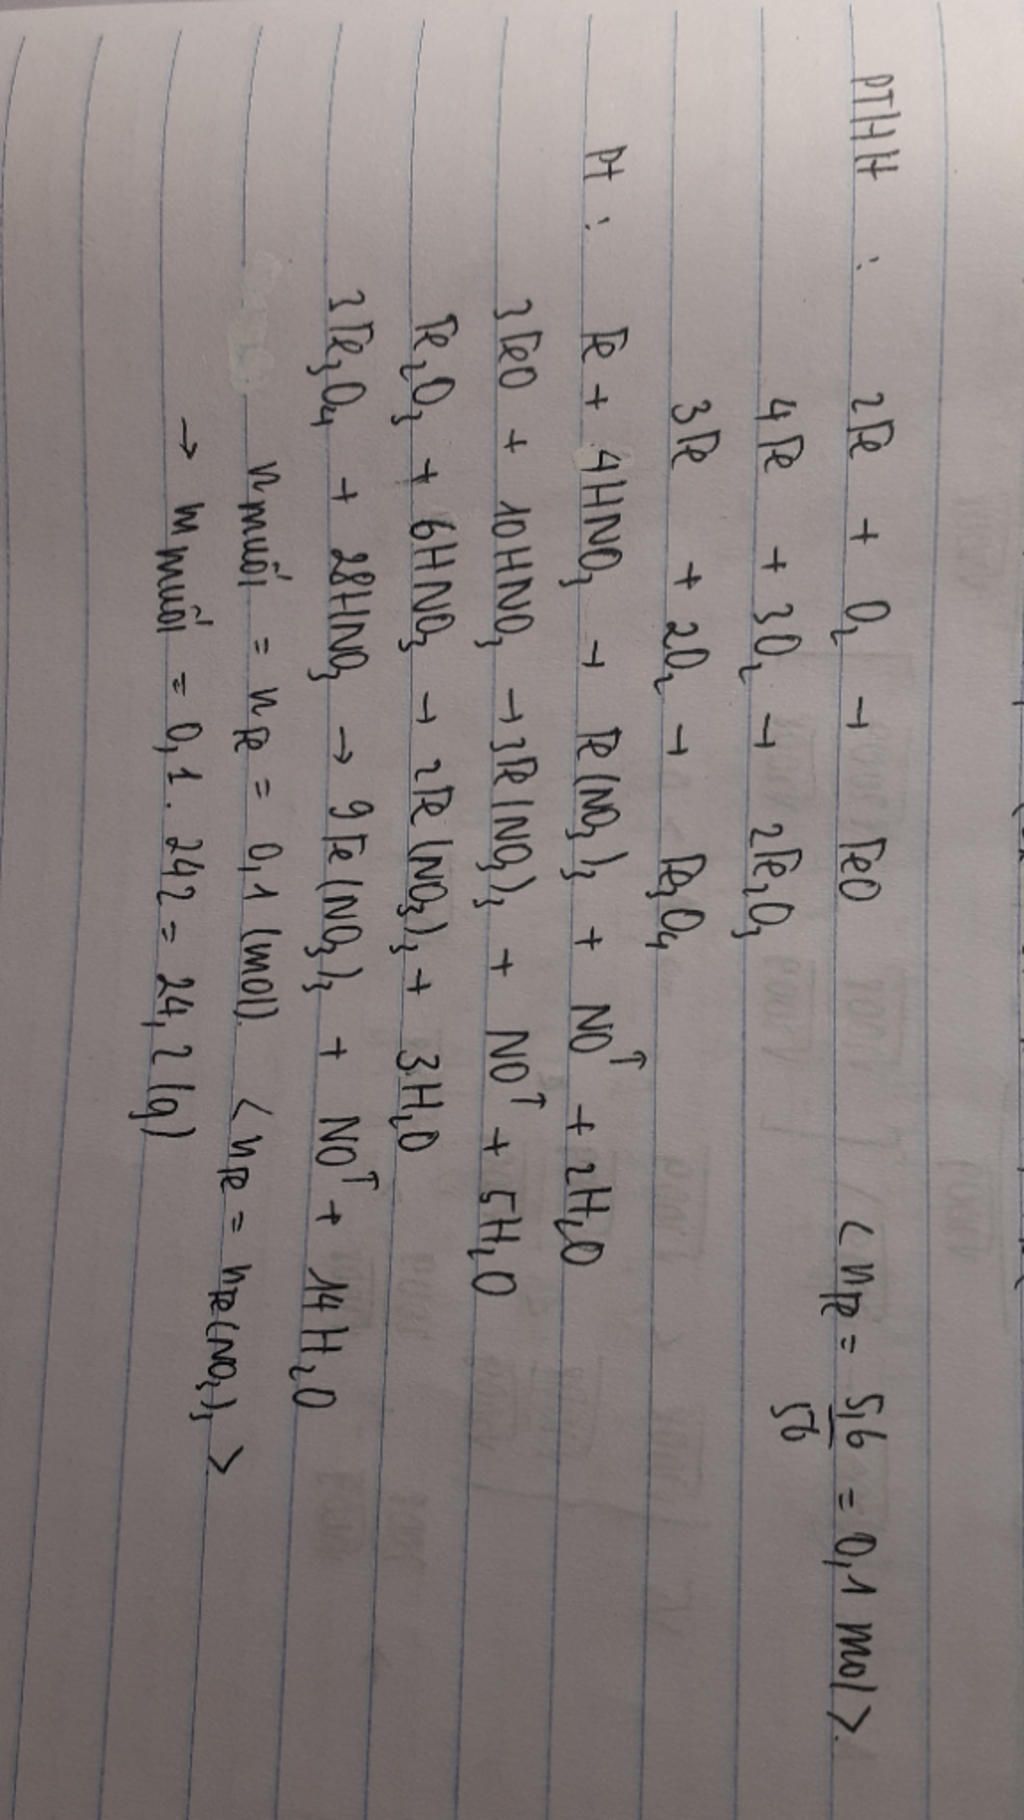 PTHH : 2Fe + O₂ → FeO < nFe = 5,6/56 = 0,1 mol >
4Fe + 3O₂ → 2Fe₂O₃
3Fe + 2O₂ → Fe₃O₄
Pt : Fe + 4HNO₃ → Fe(NO₃)₃ + NO↑ + 2H₂O
3FeO + 10HNO₃ → 3Fe(NO₃)₃ + NO↑ + 5H₂O
Fe₂O₃ + 6HNO₃ → 2Fe(NO₃)₃ + 3H₂O
3Fe₃O₄ + 28HNO₃ → 9Fe(NO₃)₃ + NO↑ + 14H₂O
n muối = nFe = 0,1 (mol) < nFe = nFe(NO₃)₃ >
→ m muối = 0,1 . 242 = 24,2 (g)